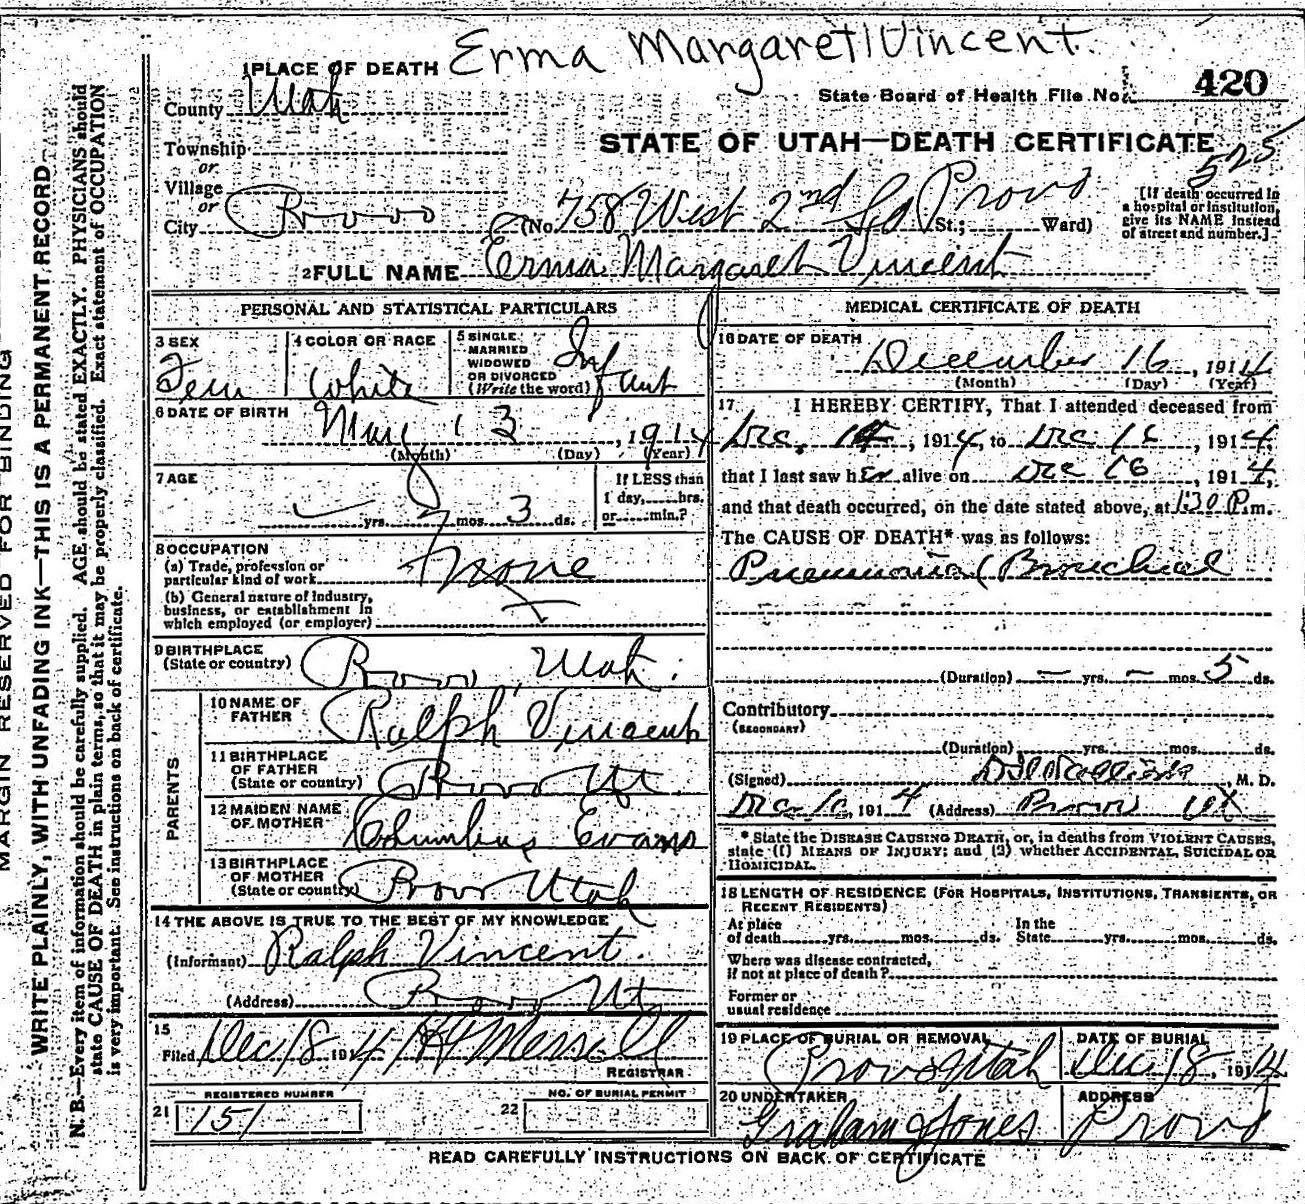 Erma Margaret Vincent
1 PLACE OF DEATH
State Board of Health File No. 420
County Utah
STATE OF UTAH—DEATH CERTIFICATE
525
Township
or
Village
or
City Provo (No. 758 West 2nd So Provo St.; Ward)
[If death occurred in
a hospital or institution,
give its NAME instead
of street and number.]
2 FULL NAME Erma Margaret Vincent
PERSONAL AND STATISTICAL PARTICULARS
3 SEX
Fem
4 COLOR OR RACE
White
5 SINGLE
MARRIED
WIDOWED
OR DIVORCED
(Write the word)
Infant
6 DATE OF BIRTH
13, 1914
(Month) (Day) (Year)
7 AGE
yrs. mos. 3 ds.
If LESS than
1 day, hrs.
or min.?
8 OCCUPATION
(a) Trade, profession or
particular kind of work
None
(b) General nature of industry,
business, or establishment in
which employed (or employer)
9 BIRTHPLACE
(State or country)
Provo, Utah.
PARENTS
10 NAME OF
FATHER
Ralph Vincent
11 BIRTHPLACE
OF FATHER
(State or country)
Provo Ut.
12 MAIDEN NAME
OF MOTHER
Columbus Evans
13 BIRTHPLACE
OF MOTHER
(State or country)
Provo Utah
14 THE ABOVE IS TRUE TO THE BEST OF MY KNOWLEDGE
(Informant) Ralph Vincent.
(Address) Provo Ut
15
Filed Dec 18 1914
REGISTRAR
REGISTERED NUMBER
21 151
NO. OF BURIAL PERMIT
22
MEDICAL CERTIFICATE OF DEATH
16 DATE OF DEATH
December 16, 1914
(Month) (Day) (Year)
17 I HEREBY CERTIFY, That I attended deceased from
Dec. 14, 1914, to Dec 16, 1914,
that I last saw her alive on Dec 16, 1914,
and that death occurred, on the date stated above, at 130 P.m.
The CAUSE OF DEATH* was as follows:
Pneumonia (Bronchial
(Duration) — yrs. — mos. 5 ds.
Contributory
(SECONDARY)
(Duration) yrs. mos. ds.
(Signed) M. D.
Dec 1914 (Address) Provo Ut
* State the DISEASE CAUSING DEATH, or, in deaths from VIOLENT CAUSES,
state (1) MEANS OF INJURY; and (2) whether ACCIDENTAL, SUICIDAL OR
HOMICIDAL.
18 LENGTH OF RESIDENCE (FOR HOSPITALS, INSTITUTIONS, TRANSIENTS, OR
RECENT RESIDENTS)
At place
of death yrs. mos. ds.
In the
State yrs. mos. ds.
Where was disease contracted,
if not at place of death?
Former or
usual residence
19 PLACE OF BURIAL OR REMOVAL
Provo Utah
DATE OF BURIAL
Dec 18, 1914
20 UNDERTAKER
Graham Jones
ADDRESS
Provo
READ CAREFULLY INSTRUCTIONS ON BACK OF CERTIFICATE
MARGIN RESERVED FOR BINDING
WRITE PLAINLY, WITH UNFADING INK—THIS IS A PERMANENT RECORD
N. B.—Every item of information should be carefully supplied. AGE should be stated EXACTLY. PHYSICIANS should
state CAUSE OF DEATH in plain terms, so that it may be properly classified. Exact statement of OCCUPATION
is very important. See instructions on back of certificate.